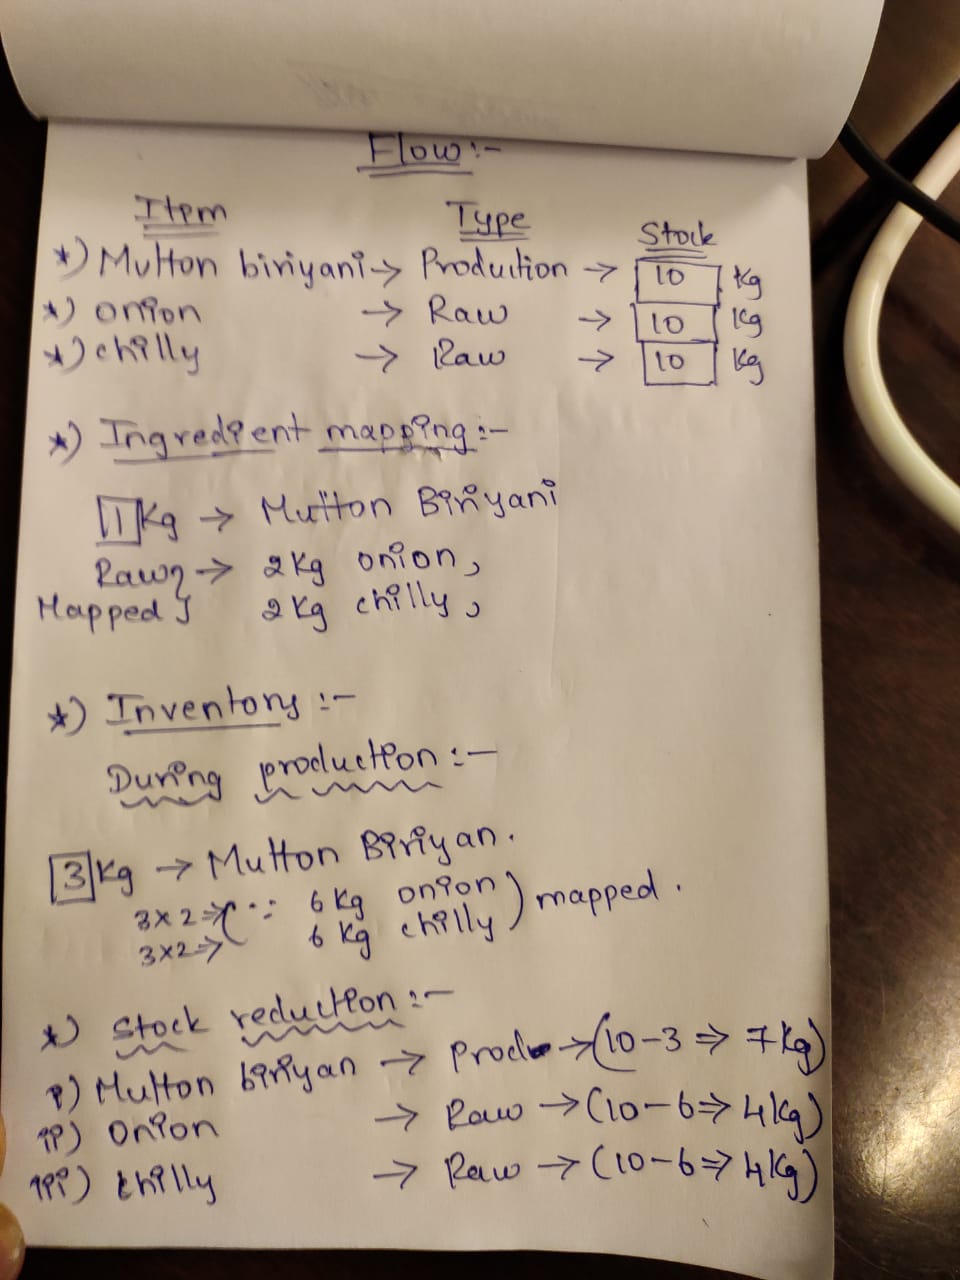 Flow :-
Item Type Stock
*) Mutton biriyani → Production → 10 Kg
*) onion → Raw → 10 Kg
*) chilly → Raw → 10 Kg
*) Ingredient mapping :-
1 Kg → Mutton Biriyani
Raw } → 2 Kg onion,
Mapped } 2 Kg chilly,
*) Inventory :-
During production :-
3 Kg → Mutton Biriyan.
3×2 ⇒ ( ∵ 6 Kg onion ) mapped.
3×2 ⇒ ( 6 Kg chilly )
*) Stock reduction :-
i) Mutton biriyan → Prod → (10-3 ⇒ 7 Kg)
ii) Onion → Raw → (10-6 ⇒ 4 Kg)
iii) chilly → Raw → (10-6 ⇒ 4 Kg)